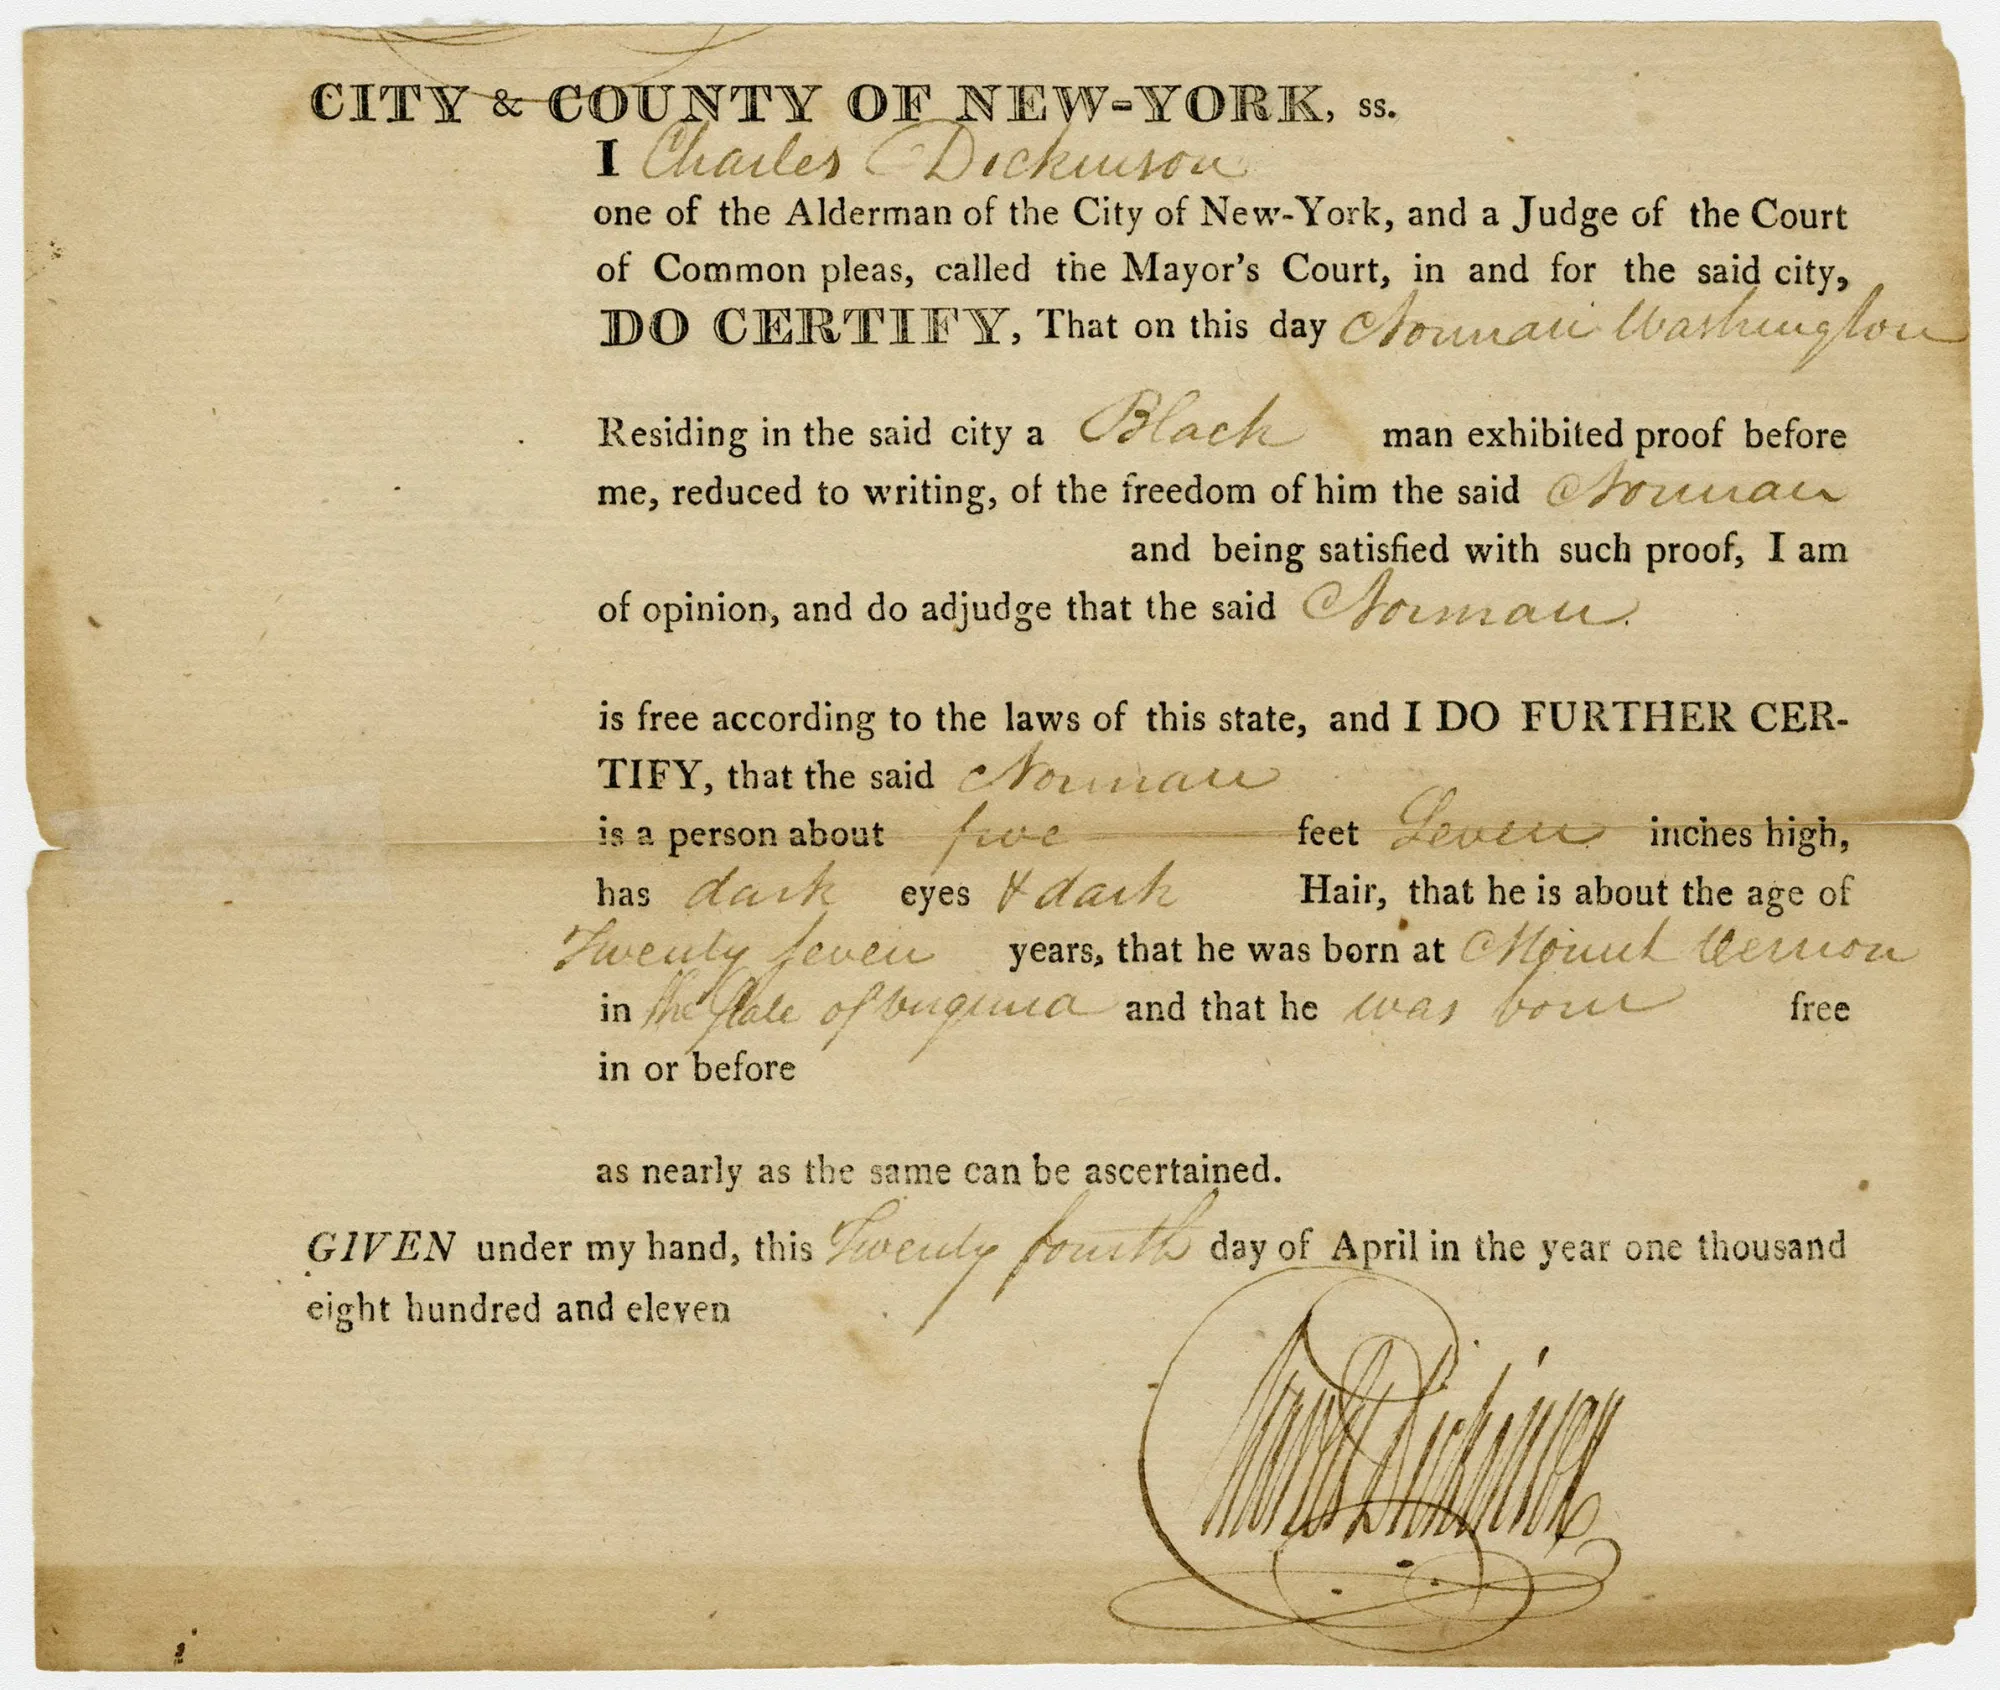 CITY & COUNTY OF NEW-YORK, ss.
I Charles Dickinson
one of the Alderman of the City of New-York, and a Judge of the Court
of Common pleas, called the Mayor's Court, in and for the said city,
DO CERTIFY, That on this day Norman Washington
Residing in the said city a Black man exhibited proof before
me, reduced to writing, of the freedom of him the said Norman
and being satisfied with such proof, I am
of opinion, and do adjudge that the said Norman.
is free according to the laws of this state, and I DO FURTHER CER-
TIFY, that the said Norman
is a person about five feet Seven inches high,
has dark eyes & dark Hair, that he is about the age of
Twenty Seven years, that he was born at Mount Vernon
in the State of Virginia and that he was born free
in or before
as nearly as the same can be ascertained.
GIVEN under my hand, this Twenty fourth day of April in the year one thousand
eight hundred and eleven
Charles Dickinson